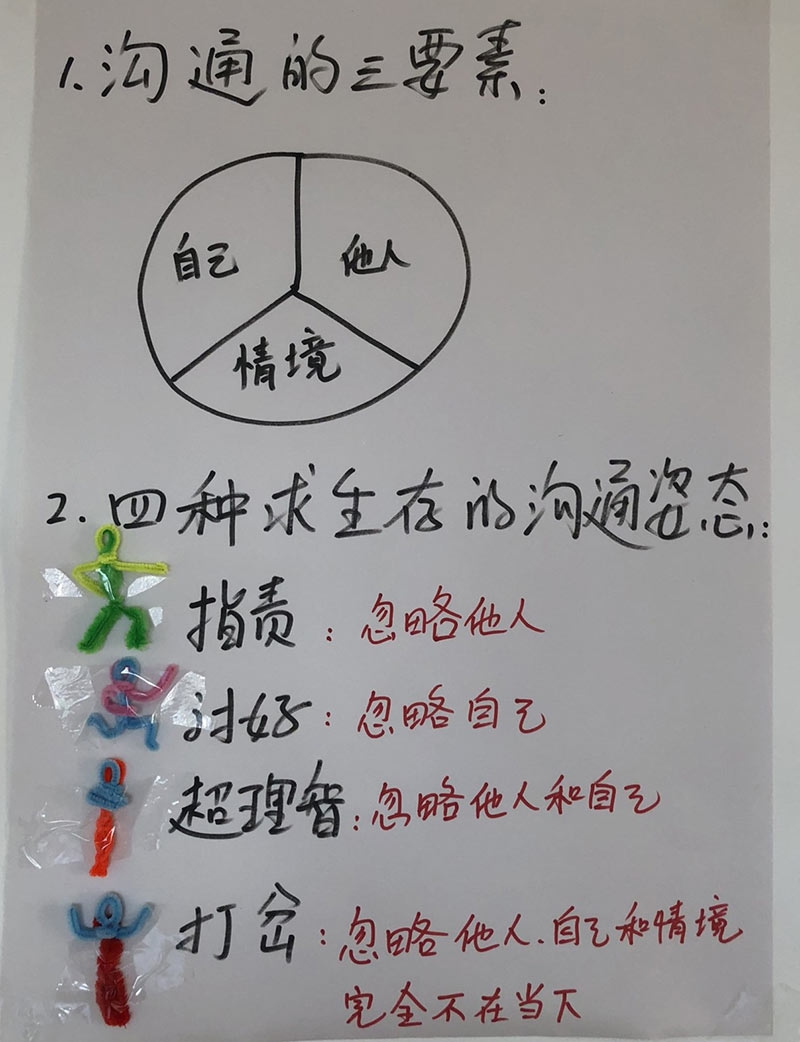 1.沟通的三要素：
自己
他人
情境
2.四种求生存的沟通姿态：
指责：忽略他人
讨好：忽略自己
超理智：忽略他人和自己
打岔：忽略他人、自己和情境
完全不在当下